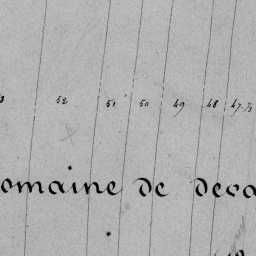 52 51 50 49 48 47
omaine de deca